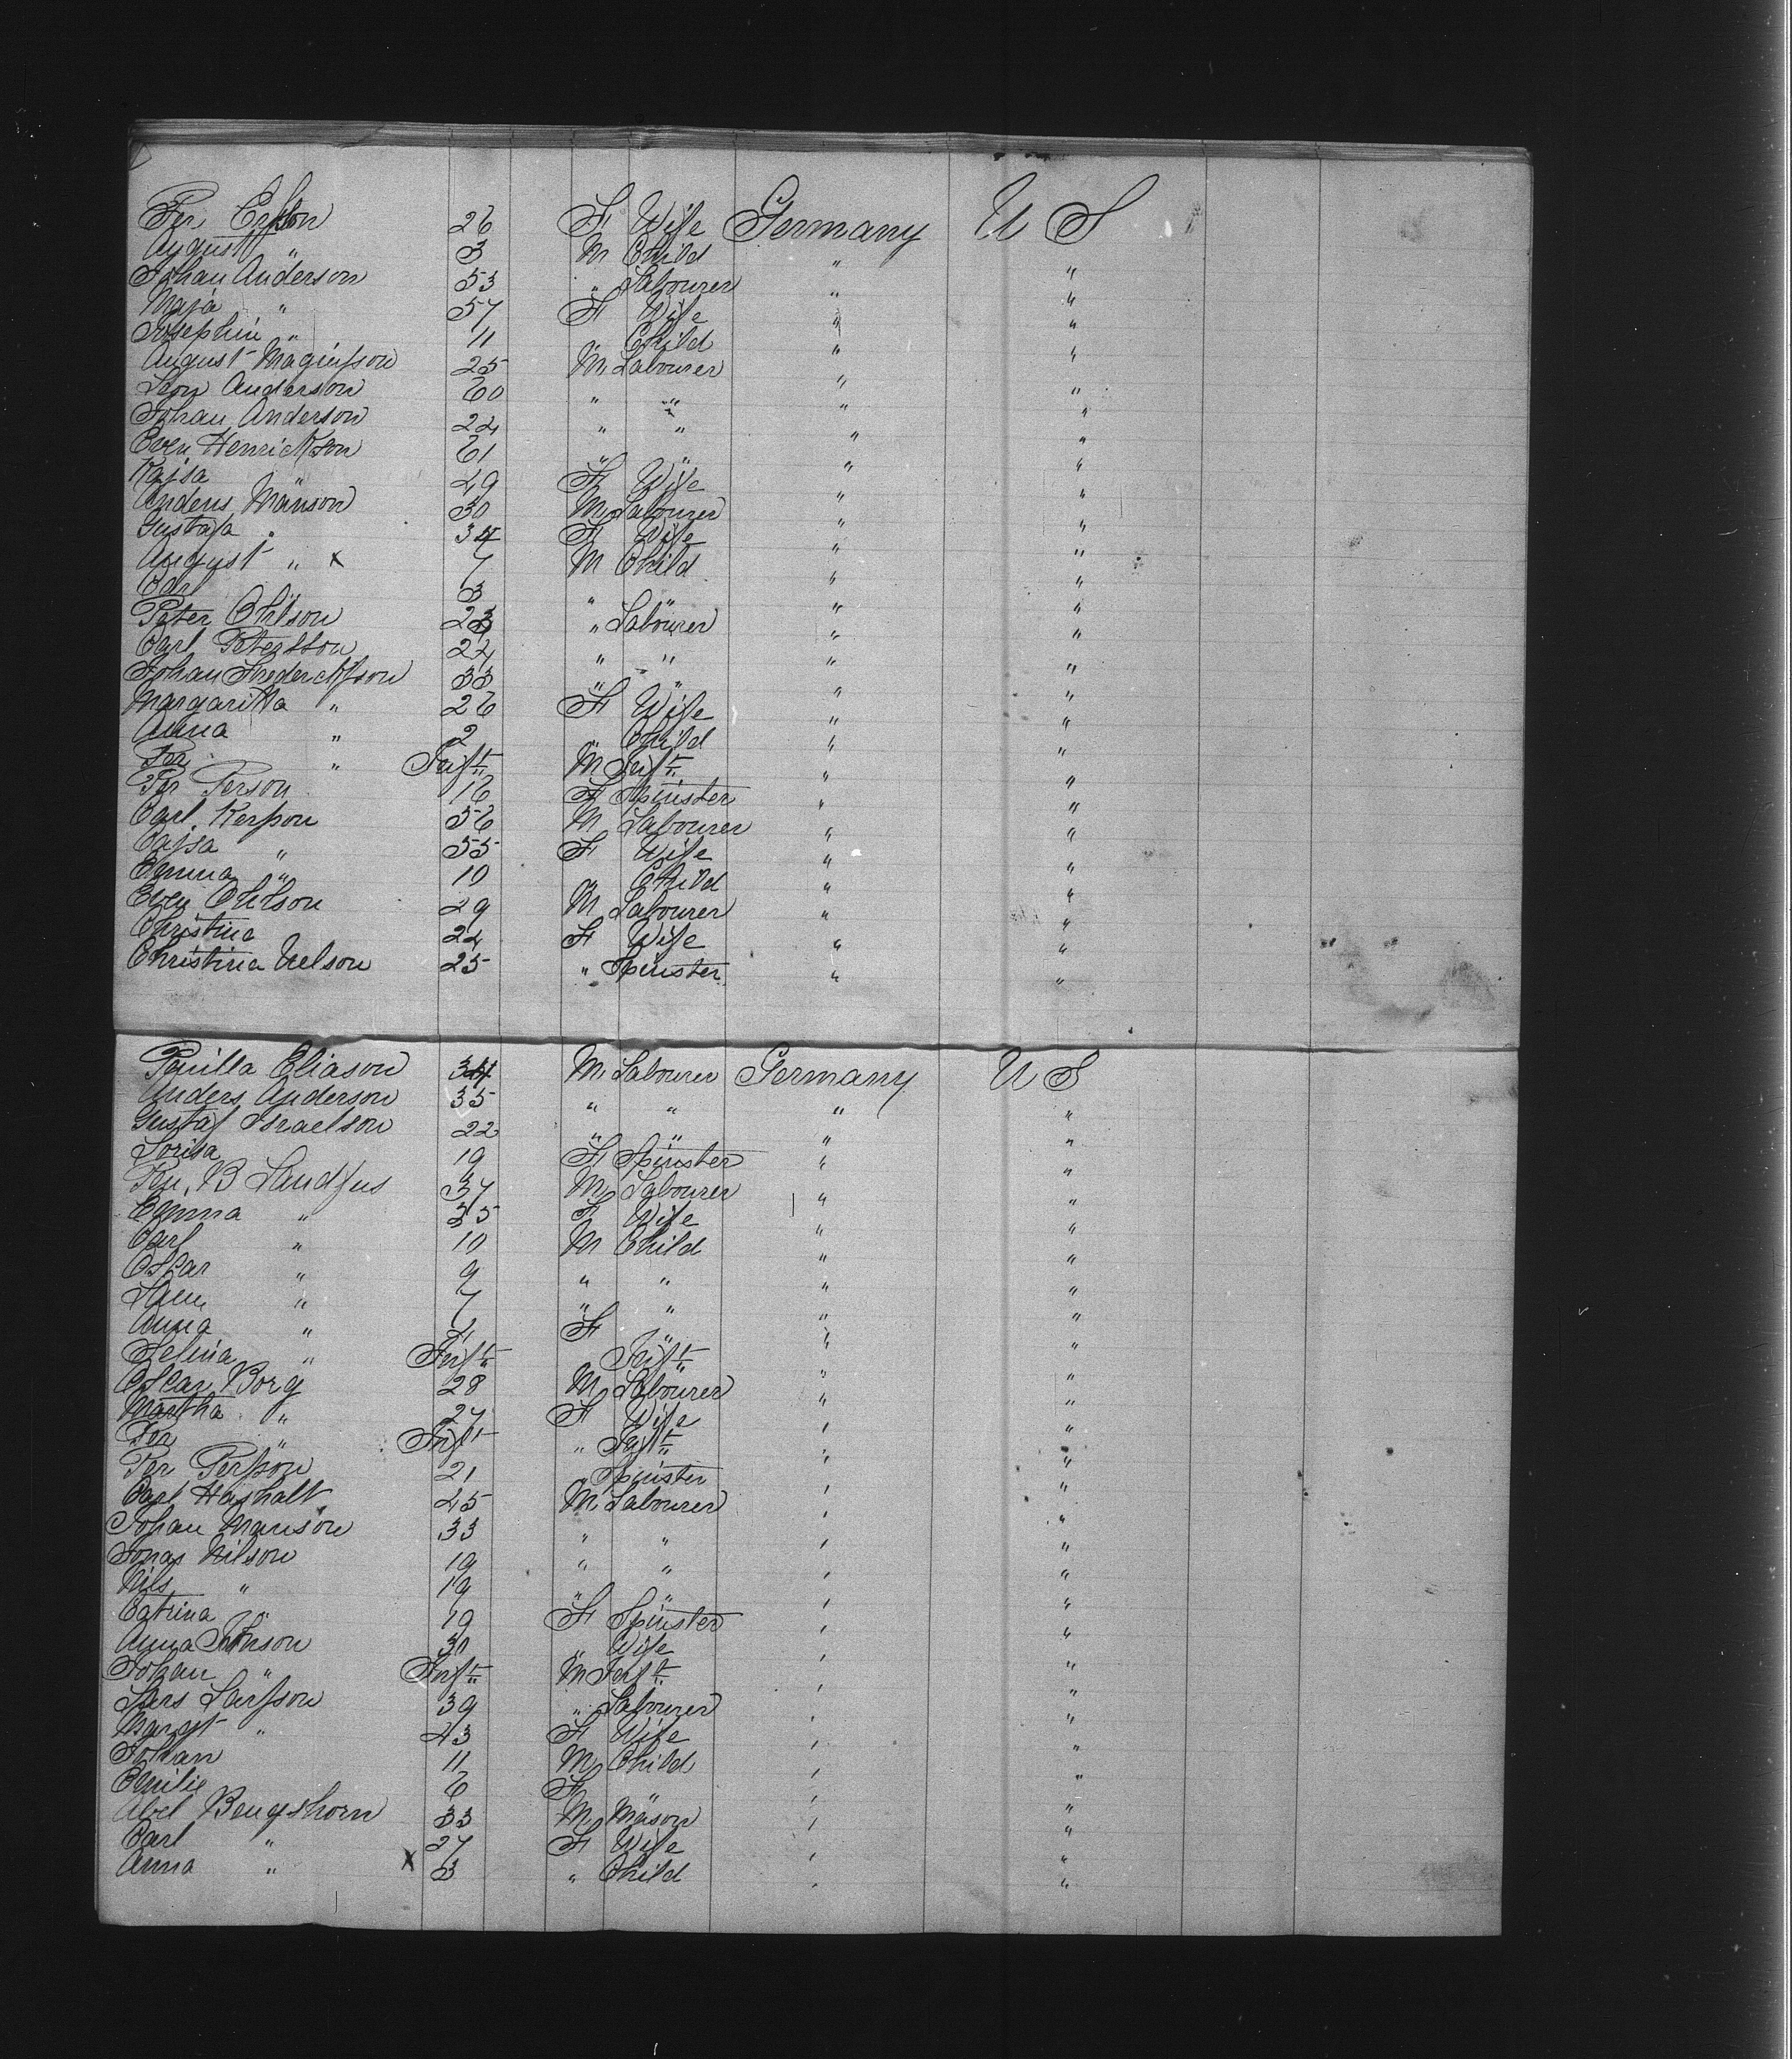 Per Erson 26 F Wife Germany U S
August " 3 M Child " "
Johan Anderson 53 " Labourer " "
Maja " 57 F Wife " "
Josephin " 11 " Child " "
August Magnusson 25 M Labourer " "
Leon Anderson 60 " " " "
Johan Anderson 22 " " " "
Even Henrickson 61 " " " "
Kajsa " 49 F Wife " "
Anders Manson 30 M Labourer " "
Gustafa " 34 F Wife " "
August " x 7 M Child " "
Carl " 3 " " " "
Peter Ohlson 23 " Labourer " "
Carl Petersson 24 " " " "
Johan Frederickson 33 " " " "
Margaritta " 26 F Wife " "
Anna " 2 " Child " "
Per " Inft M Inft " "
Per Person 16 F Spinster " "
Carl Kerson 56 M Labourer " "
Cajsa " 55 F Wife " "
Emma " 10 " Child " "
Even Ohlson 29 M Labourer " "
Christina 24 F Wife " "
Christina Nelson 25 " Spinster " "
Penilla Eliason 34 M Labourer Germany U S
Anders Anderson 35 " " " "
Gustaf Israelson 22 " " " "
Lorisa 19 F Spinster " "
B Landfus 37 M Labourer " "
Emma " 35 F Wife " "
Carl " 10 M Child " "
Oskar " 9 " " " "
" 7 " " " "
Anna " F " " "
Selina " Inft " Inft " "
Oscar Borg 28 M Labourer " "
Martha " 27 F Wife " "
Per " Inft " Inft " "
Per Person 21 " Spinster " "
Carl Hashalt 45 M Labourer " "
Johan Manson 33 " " " "
Jonas Nilson 19 " " " "
Nils " 19 " " " "
Catrina " 19 F Spinster " "
Anna Johnson " Wife " "
Johan " Inft M Inft " "
Lars Larsson 39 " Labourer " "
Margt " 43 F Wife " "
Johan 11 M Child " "
Emilie 6 F " " "
Abel Bengshorn 33 M Mason " "
Carl " 27 F Wife " "
Anna " x 3 " Child " "